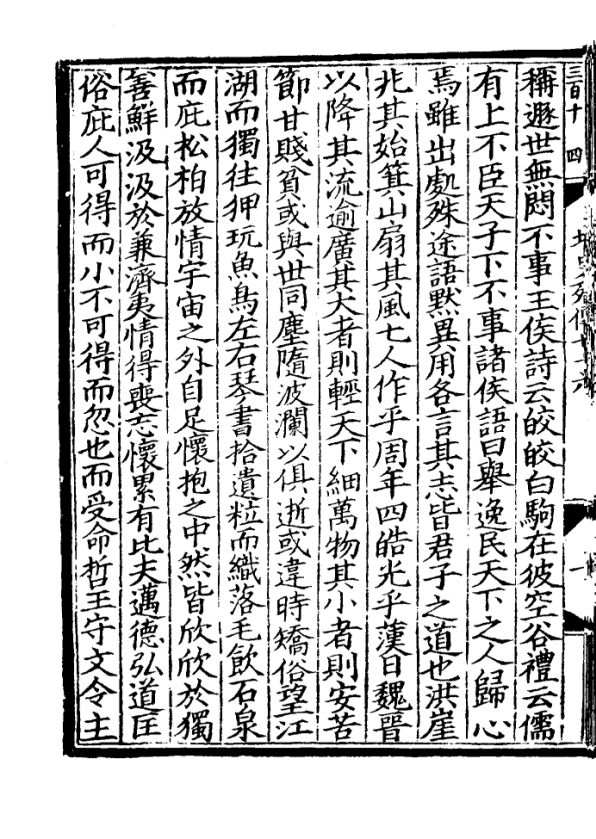 三百十四
列傳
一
稱遯世無悶不事王侯詩云皎皎白駒在彼空谷禮云儒
有上不臣天子下不事諸侯語曰舉逸民天下之人歸心
焉雖出處殊途語默異用各言其志皆君子之道也洪崖
兆其始箕山扇其風七人作乎周年四皓光乎漢日魏晉
以降其流逾廣其大者則輕天下細萬物其小者則安苦
節甘賤貧或與世同塵隨波瀾以俱逝或違時矯俗望江
湖而獨往狎玩魚鳥左右琴書拾遺粒而織落毛飲石泉
而庇松柏放情宇宙之外自足懷抱之中然皆欣欣於獨
善鮮汲汲於兼濟夷情得喪忘懷累有比夫邁德弘道匡
俗庇人可得而小不可得而忽也而受命哲王守文令主